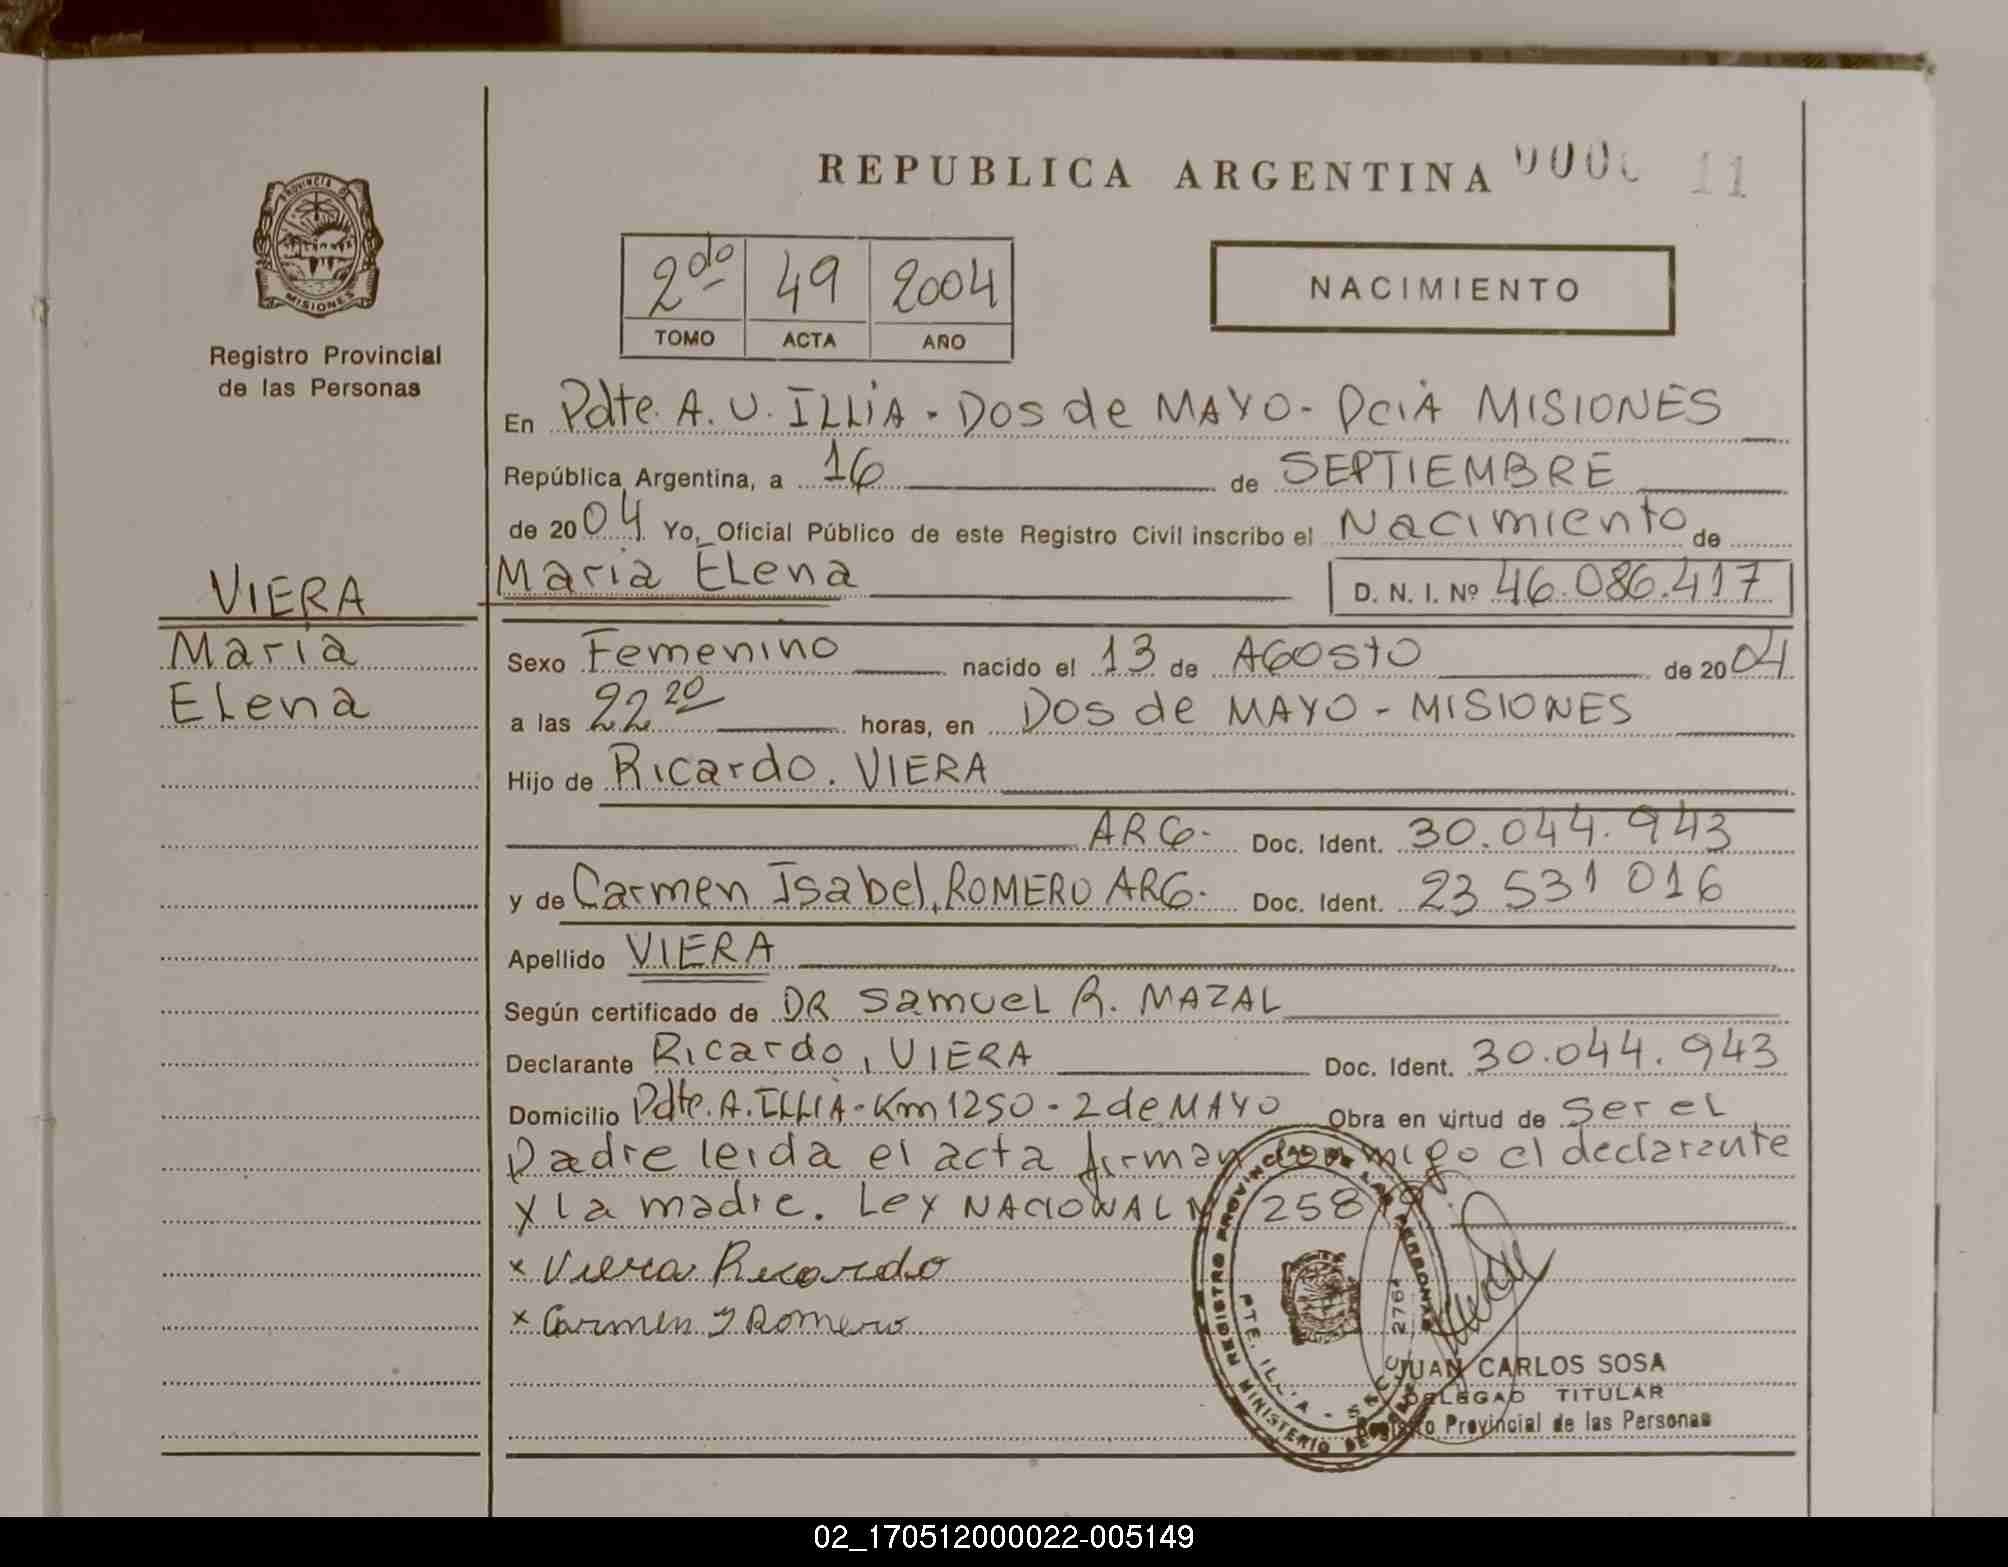 REPUBLICA ARGENTINA 000 11
PROVINCIA DE MISIONES
Registro Provincial
de las Personas
2do 49 2004
TOMO ACTA AÑO
NACIMIENTO
En Pdte. A. U. ILLIA - DOS de MAYO - PciA MISIONES
República Argentina, a 16 de SEPTIEMBRE
de 2004 Yo, Oficial Público de este Registro Civil inscribo el Nacimiento de
VIERA
María
Elena
María Elena D. N. I. Nº 46.086.417
Sexo Femenino nacido el 13 de AGOSTO de 2004
a las 22 20 horas, en DOS de MAYO - MISIONES
Hijo de Ricardo. VIERA
ARG. Doc. Ident. 30.044.943
y de Carmen Isabel, ROMERO ARG. Doc. Ident. 23 531 016
Apellido VIERA
Según certificado de DR Samuel R. MAZAL
Declarante Ricardo, VIERA Doc. Ident. 30.044.943
Domicilio Pdte. A. ILLIA - Km 1250 - 2 de MAYO Obra en virtud de ser el
Padre leida el acta firman conmigo el declarante
y la madre. Ley NACIONAL N 258
x Viera Ricardo
x Carmen I Romero
REGISTRO PROVINCIAL DE LAS PERSONAS
MINISTERIO DE
PTE. ILLIA - 2761
JUAN CARLOS SOSA
DELEGADO TITULAR
Registro Provincial de las Personas
02_170512000022-005149